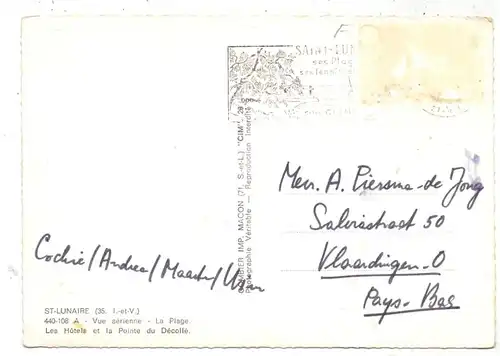 F
SAINT-LUN
ses Plag
ses tenni
Mevr. A. Piersma-de Jong
Salviastraat 50
Vlaardingen-O
Pays-Bas
Cockie/Andrea/Maarten/
COMBIER IMP. MACON (71. S.-et-L.) "CIM"
Photographie Véritable — Reproduction Interdite
ST-LUNAIRE (35. I.-et-V.)
440-108 A - Vue aérienne - La Plage.
Les Hôtels et la Pointe du Décollé.